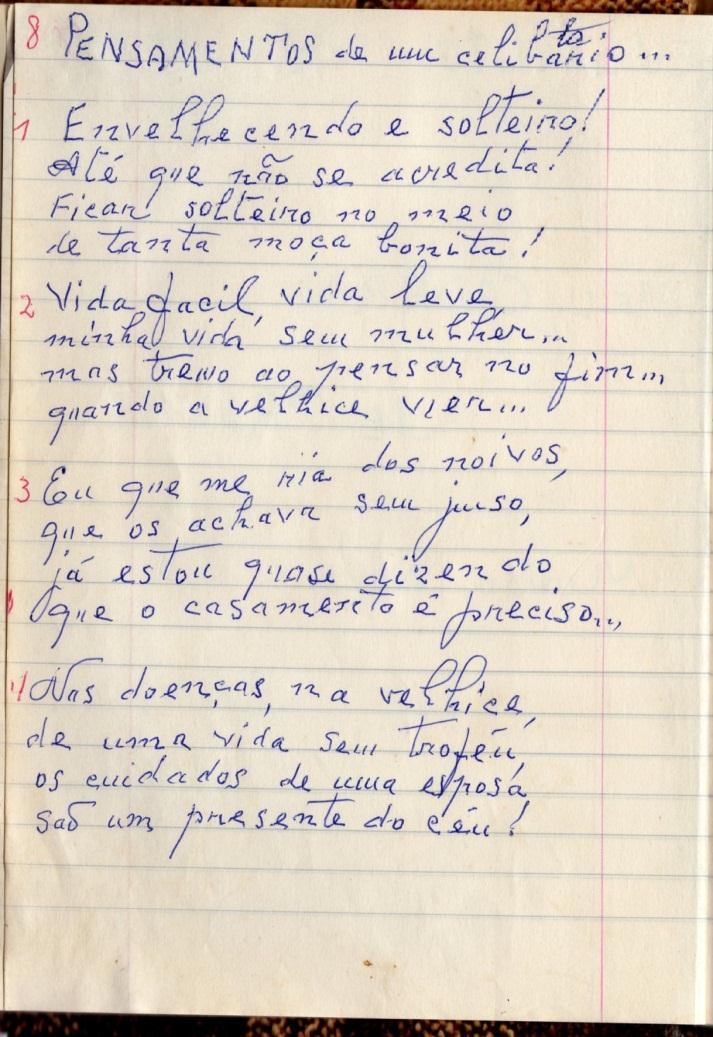 8 PENSAMENTOS de um celibatário...
1 Envelhecendo e solteiro!
Até que não se acredita!
Ficar solteiro no meio
de tanta moça bonita!
2 Vida facil, vida leve,
minha vida sem mulher...
mas tremo ao pensar no fim...
quando a velhice vier...
3 Eu que me ria dos noivos,
que os achava sem juiso,
já estou quase dizendo
que o casamento é preciso...
4 Nas doenças, na velhice,
de uma vida sem troféu,
os cuidados de uma esposa,
são um presente do céu!